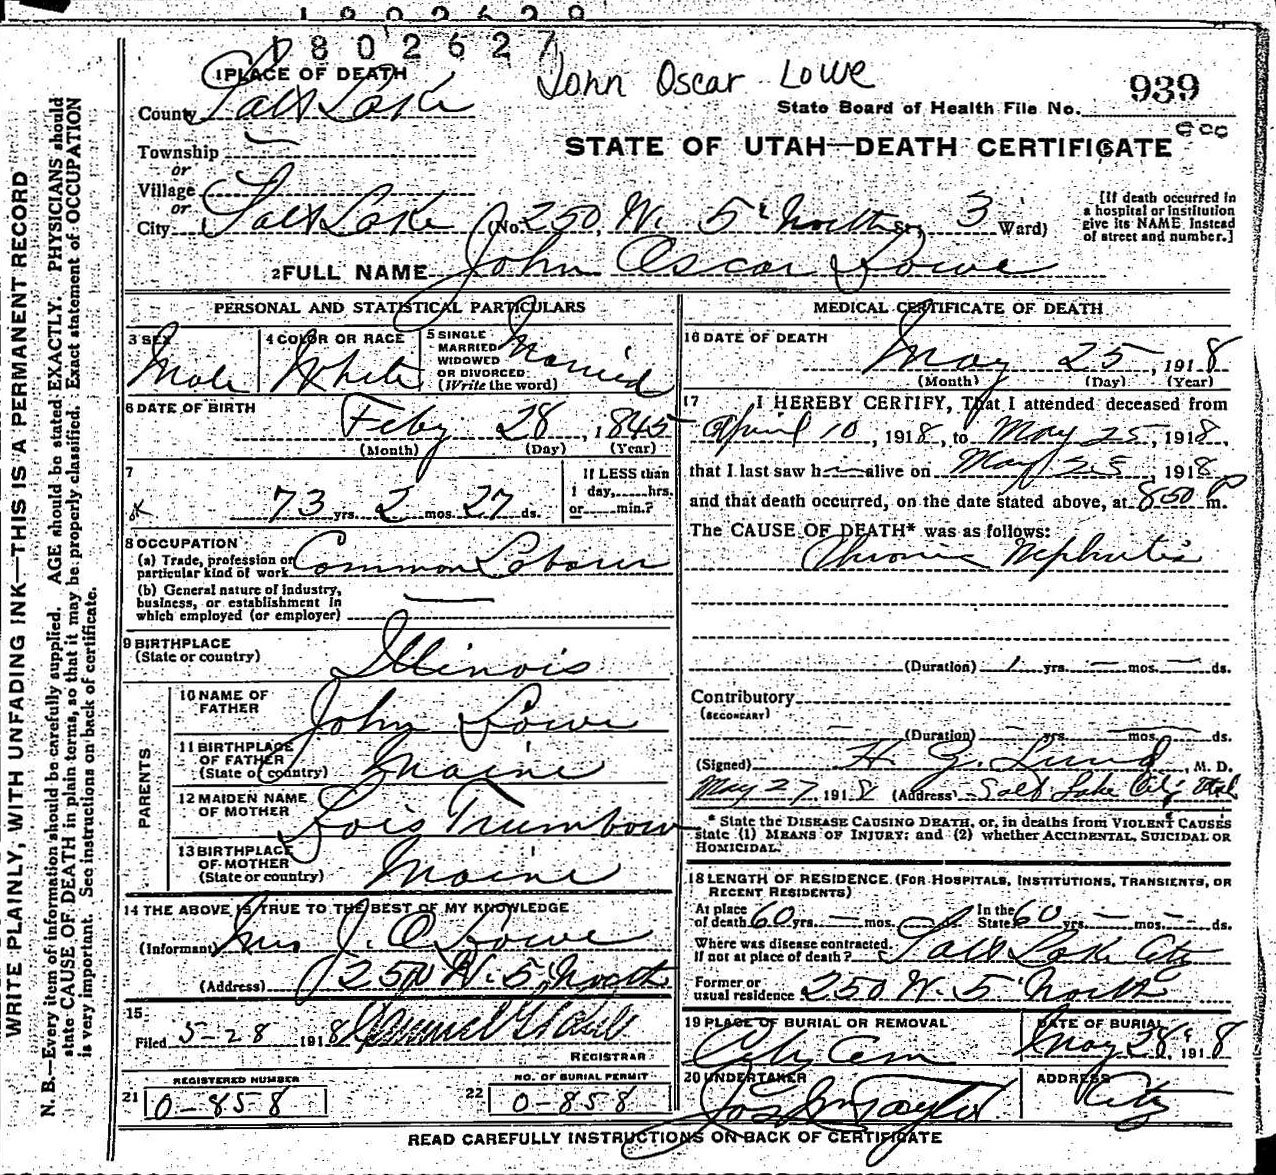 1802627
1 PLACE OF DEATH
John Oscar Lowe
County Salt Lake
State Board of Health File No. 939
Township
or
STATE OF UTAH—DEATH CERTIFICATE
Village
or
City Salt Lake (No. 250, W. 5th North St; 3 Ward)
[If death occurred in
a hospital or institution
give its NAME instead
of street and number.]
2 FULL NAME John Oscar Lowe
PERSONAL AND STATISTICAL PARTICULARS
3 SEX
Male
4 COLOR OR RACE
White
5 SINGLE
MARRIED
WIDOWED
OR DIVORCED
(Write the word)
Married
6 DATE OF BIRTH
Feby 28, 1845
(Month) (Day) (Year)
7
73 yrs. 2 mos. 27 ds.
If LESS than
1 day,.....hrs.
or.....min.?
8 OCCUPATION
(a) Trade, profession or
particular kind of work Common Laborer
(b) General nature of industry,
business, or establishment in
which employed (or employer)
9 BIRTHPLACE
(State or country)
Illinois
PARENTS
10 NAME OF
FATHER
John Lowe
11 BIRTHPLACE
OF FATHER
(State or country)
Maine
12 MAIDEN NAME
OF MOTHER
Lois Trumbow
13 BIRTHPLACE
OF MOTHER
(State or country)
Maine
14 THE ABOVE IS TRUE TO THE BEST OF MY KNOWLEDGE
(Informant) Mrs J. O. Lowe
(Address) 250 W. 5 North
15
Filed 5-28 1918
REGISTRAR
REGISTERED NUMBER
21 0-858
NO. OF BURIAL PERMIT
22 0-858
MEDICAL CERTIFICATE OF DEATH
16 DATE OF DEATH
May 25, 1918
(Month) (Day) (Year)
17 I HEREBY CERTIFY, That I attended deceased from
April 10, 1918, to May 25, 1918,
that I last saw h—alive on May 25 1918
and that death occurred, on the date stated above, at 850 P m.
The CAUSE OF DEATH* was as follows:
Chronic Nephritis
(Duration) 1 yrs. — mos. — ds.
Contributory
(SECONDARY)
(Duration) — yrs. — mos. — ds.
(Signed) H. G. Lund, M. D.
May 27, 1918 (Address) Salt Lake City Utah
* State the DISEASE CAUSING DEATH, or, in deaths from VIOLENT CAUSES
state (1) MEANS OF INJURY; and (2) whether ACCIDENTAL, SUICIDAL OR
HOMICIDAL.
18 LENGTH OF RESIDENCE (FOR HOSPITALS, INSTITUTIONS, TRANSIENTS, OR
RECENT RESIDENTS)
At place
of death 60 yrs. — mos. ds. In the
State 60 yrs. — mos. — ds.
Where was disease contracted.
If not at place of death? Salt Lake City
Former or
usual residence 250 W. 5 North
19 PLACE OF BURIAL OR REMOVAL
City Cem
DATE OF BURIAL
May 28, 1918
20 UNDERTAKER
Taylor
ADDRESS
City
READ CAREFULLY INSTRUCTIONS ON BACK OF CERTIFICATE
WRITE PLAINLY, WITH UNFADING INK—THIS IS A PERMANENT RECORD
N. B.—Every item of information should be carefully supplied. AGE should be stated EXACTLY. PHYSICIANS should
state CAUSE OF DEATH in plain terms, so that it may be properly classified. Exact statement of OCCUPATION
is very important. See instructions on back of certificate.